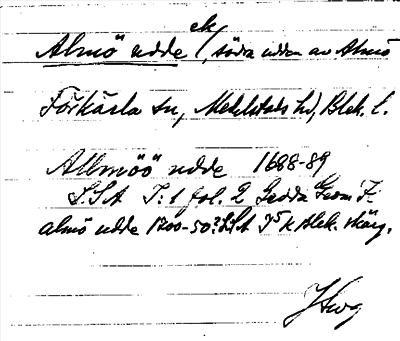 ek
Almö udde /, södra udden av Almö
Förkärla sn, Medelstads hd, Blek. l.
Allmöö udde 1688-89
LSA T:1 fol. 2 Gedda Geom F:
almö udde 1700-50? LSA J5k Blek. skärg.